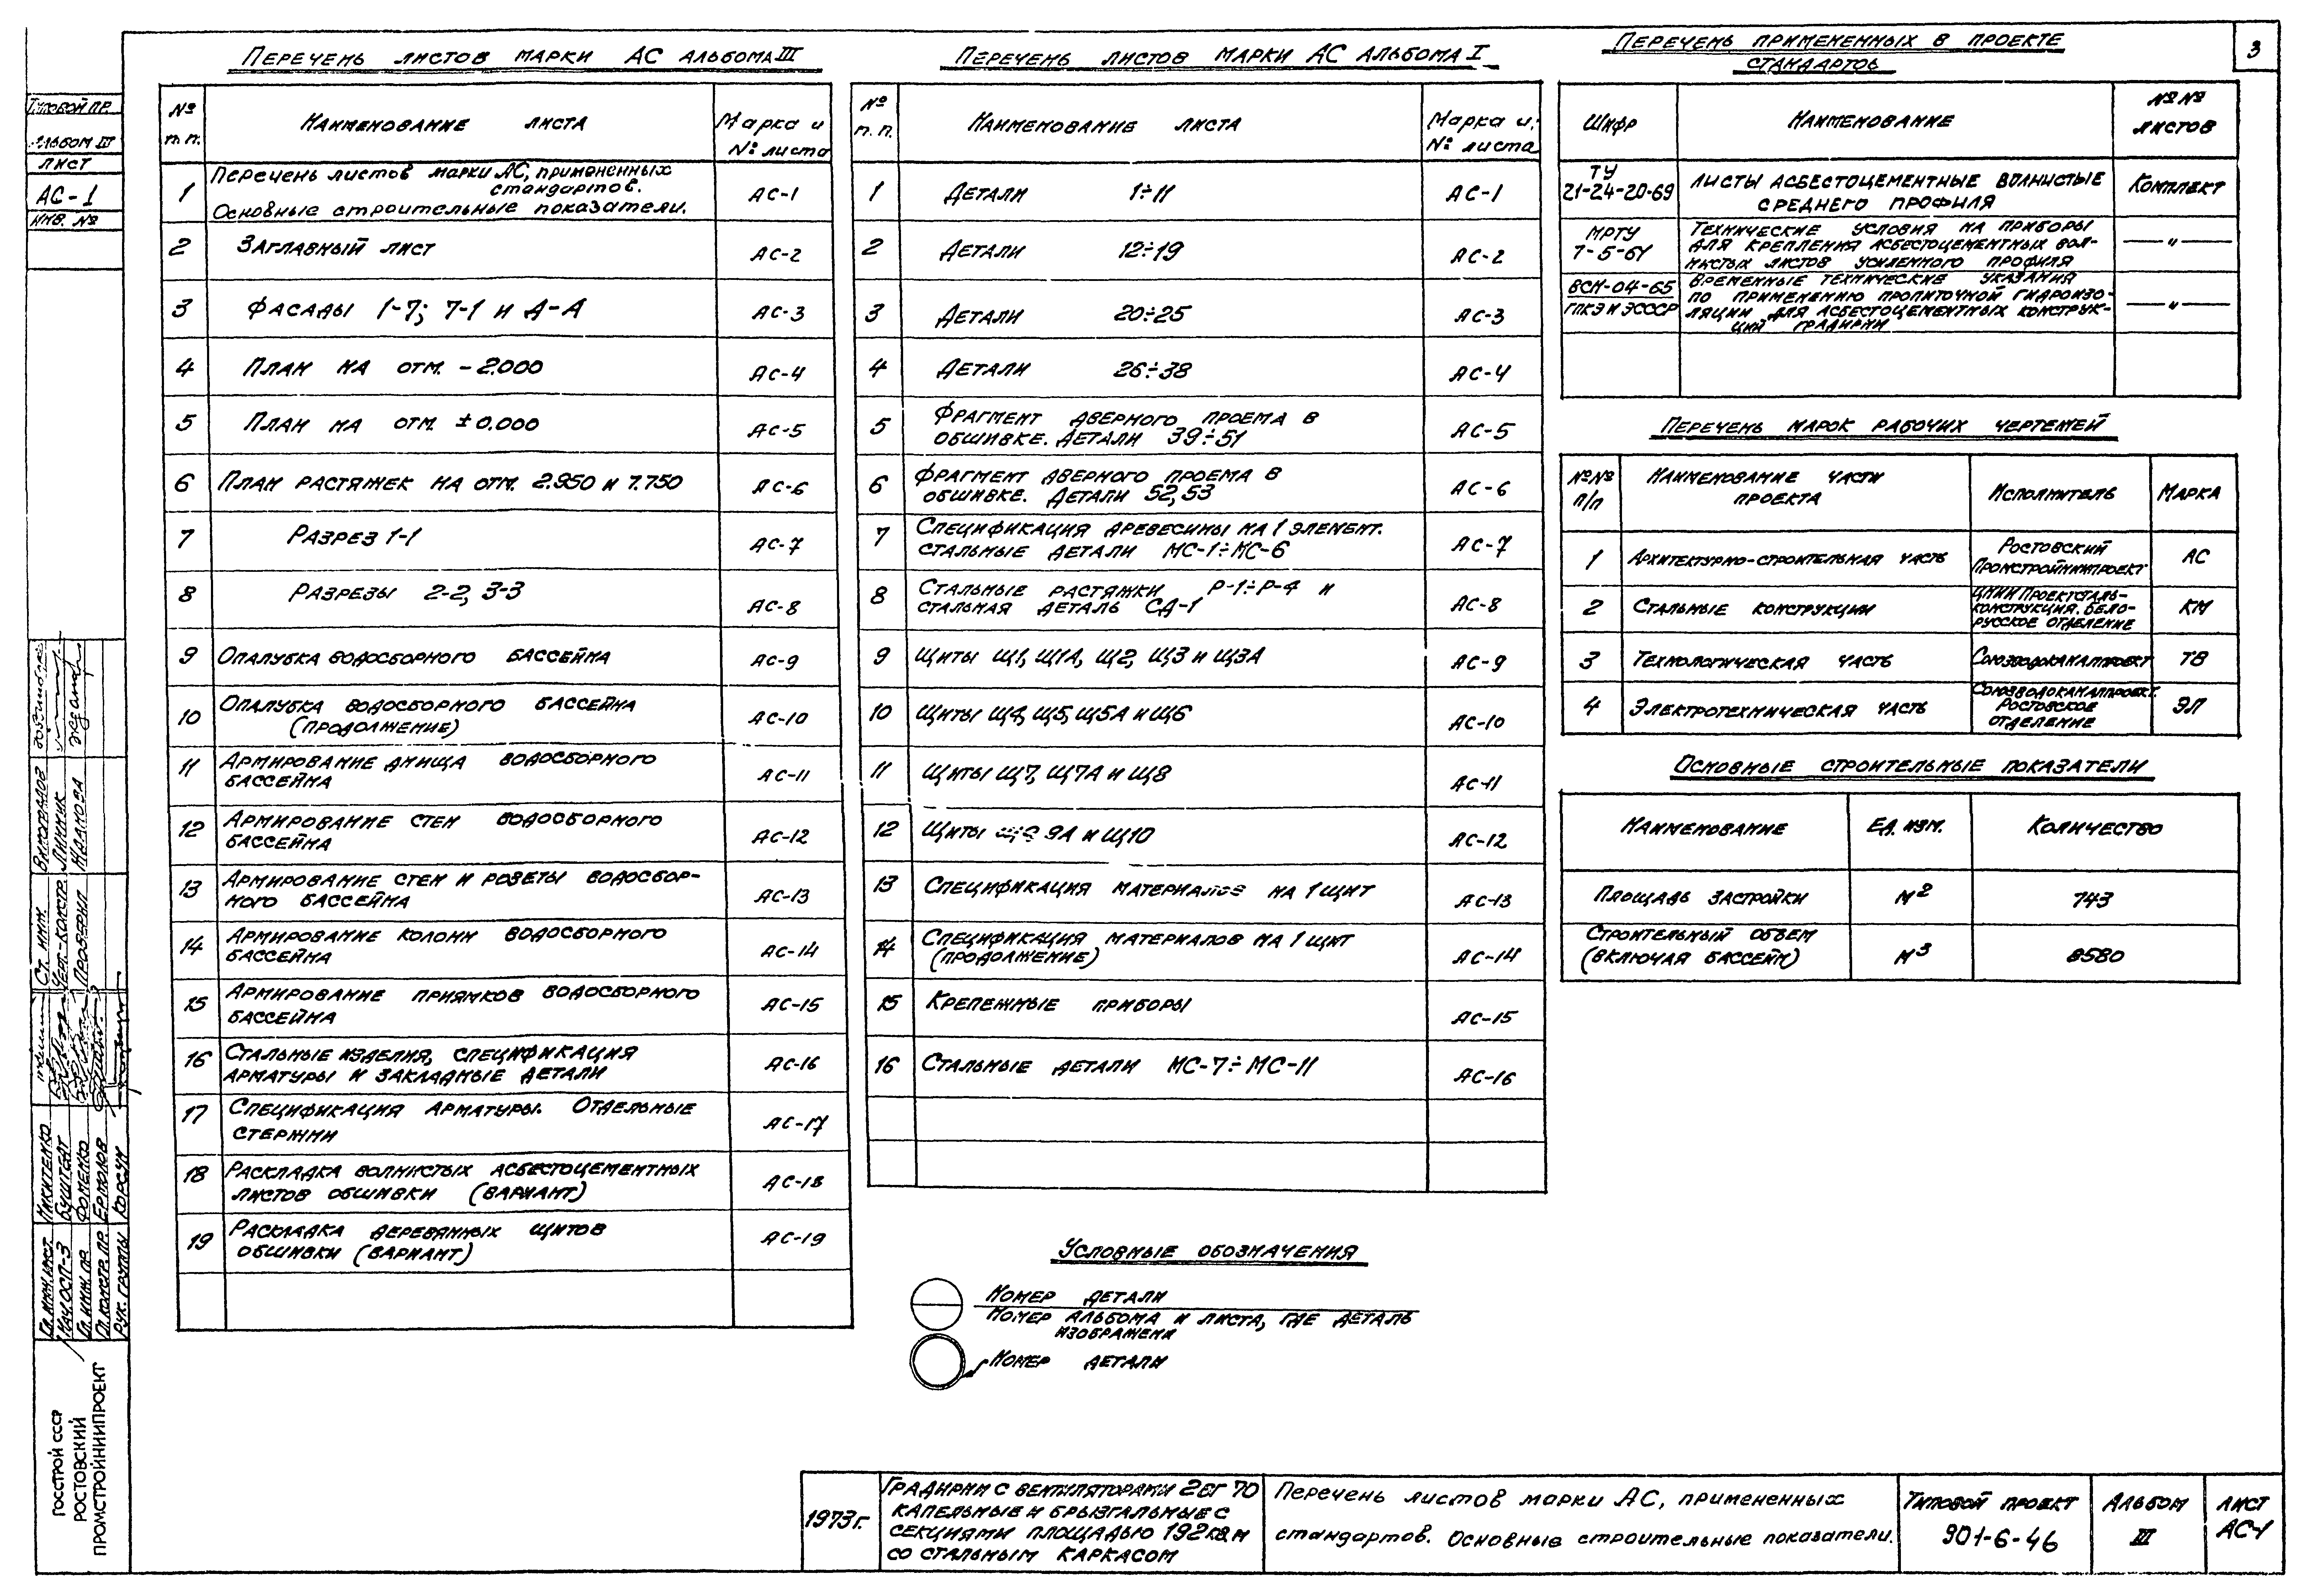 3
Типовой пр.
Альбом III
Лист
АС-1
Инв. №
Перечень листов марки АС альбома III
№ п.п.
Наименование листа
Марка и № листа
1
Перечень листов марки АС, примененных
стандартов.
Основные строительные показатели.
АС-1
2 Заглавный лист АС-2
3 Фасады 1-7; 7-1 и А-А АС-3
4 План на отм. -2.000 АС-4
5 План на отм. ±0.000 АС-5
6 План растяжек на отм. 2.950 и 7.750 АС-6
7 Разрез 1-1 АС-7
8 Разрезы 2-2, 3-3 АС-8
9 Опалубка водосборного бассейна АС-9
10 Опалубка водосборного бассейна
(продолжение) АС-10
11 Армирование днища водосборного
бассейна АС-11
12 Армирование стен водосборного
бассейна АС-12
13 Армирование стен и розеты водосбор-
ного бассейна АС-13
14 Армирование колонн водосборного
бассейна АС-14
15 Армирование приямков водосборного
бассейна АС-15
16 Стальные изделия, спецификация
арматуры и закладные детали АС-16
17 Спецификация арматуры. Отдельные
стержни АС-17
18 Раскладка волнистых асбестоцементных
листов обшивки (вариант) АС-18
19 Раскладка деревянных щитов
обшивки (вариант) АС-19
Перечень листов марки АС альбома I
№ п.п.
Наименование листа
Марка и № листа
1 Детали 1÷11 АС-1
2 Детали 12÷19 АС-2
3 Детали 20÷25 АС-3
4 Детали 26÷38 АС-4
5 Фрагмент дверного проема в
обшивке. Детали 39÷51 АС-5
6 Фрагмент дверного проема в
обшивке. Детали 52, 53 АС-6
7 Спецификация древесины на 1 элемент.
Стальные детали МС-1÷МС-6 АС-7
8 Стальные растяжки Р-1÷Р-4 и
стальная деталь СД-1 АС-8
9 Щиты Щ1, Щ1А, Щ2, Щ3 и Щ3А АС-9
10 Щиты Щ4, Щ5, Щ5А и Щ6 АС-10
11 Щиты Щ7, Щ7А и Щ8 АС-11
12 Щиты 9А и Щ10 АС-12
13 Спецификация материалов на 1 щит АС-13
14 Спецификация материалов на 1 щит
(продолжение) АС-14
15 Крепежные приборы АС-15
16 Стальные детали МС-7÷МС-11 АС-16
Условные обозначения
Номер детали
Номер альбома и листа, где деталь
изображена
Номер детали
Перечень примененных в проекте
стандартов
Шифр
Наименование
№№ листов
ТУ
21-24-20-69
Листы асбестоцементные волнистые
среднего профиля
Комплект
МРТУ
7-5-61
Технические условия на приборы
для крепления асбестоцементных вол-
нистых листов усиленного профиля
—"—
ВСН-04-65
ГПКЭ и ЭСССР
Временные технические указания
по применению пропиточной гидроизо-
ляции для асбестоцементных конструк-
ций градирни
—"—
Перечень марок рабочих чертежей
№№ п/п
Наименование части
проекта
Исполнитель
Марка
1 Архитектурно-строительная часть
Ростовский
Промстройниипроект
АС
2 Стальные конструкции
ЦНИИПроектсталь-
конструкция. Бело-
русское отделение
КМ
3 Технологическая часть Союзводоканалпроект ТВ
4 Электротехническая часть
Союзводоканалпроект.
Ростовское
отделение
ЭЛ
Основные строительные показатели
Наименование Ед. изм. Количество
Площадь застройки м2 743
Строительный объем
(включая бассейн) м3 8580
Ст. инж. Виноградов
Техн.-констр. Линник
Проверил Жданова
Гл. инж. инст. Никитенко
Нач. ОСП-3 Буштедт
Гл. инж. пр. Фоменко
Гл. констр. пр. Ермолов
Рук. группы Корсун
Госстрой СССР
Ростовский
Промстройниипроект
1973г.
Градирни с вентиляторами 2ВГ 70
капельные и брызгальные с
секциями площадью 192 кв.м
со стальным каркасом
Перечень листов марки АС, примененных
стандартов. Основные строительные показатели.
Типовой проект
901-6-46
Альбом
III
Лист
АС-1